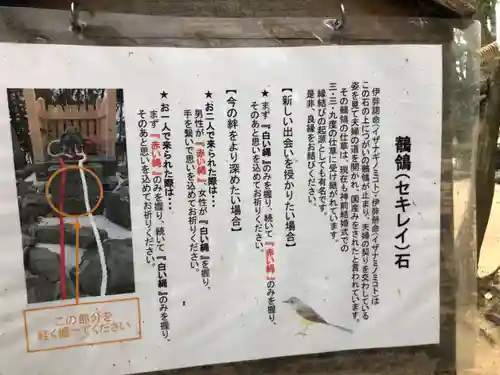 鶺鴒(セキレイ)石
伊弉諾命(イザナギノミコト)伊弉冊命(イザナミノミコト)は
この石の上につがいの鶺鴒が止まり、夫婦の契りを交わしている
姿を見て夫婦の道を開かれ、国産みをされたと言われています。
その鶺鴒の仕草は、現在も神前結婚式での
三・三・九度の仕草に受け継がれています。
縁結びの起源としても有名です。
是非、良縁をお結びください。
【新しい出会いを授かりたい場合】
★まず、『白い縄』のみを握り、続いて『赤い縄』のみを握り、
そのあと思いを込めてお祈りください。
【今の絆をより深めたい場合】
★お二人で来られた際は・・・
男性が、『赤い縄』、女性が『白い縄』を握り、
手を繋いで思いを込めてお祈りください。
★お一人で来られた際は・・・
まず、『赤い縄』のみを握り、続いて、『白い縄』のみを握り、
そのあと思いを込めてお祈りください。
この部分を
軽く握ってください